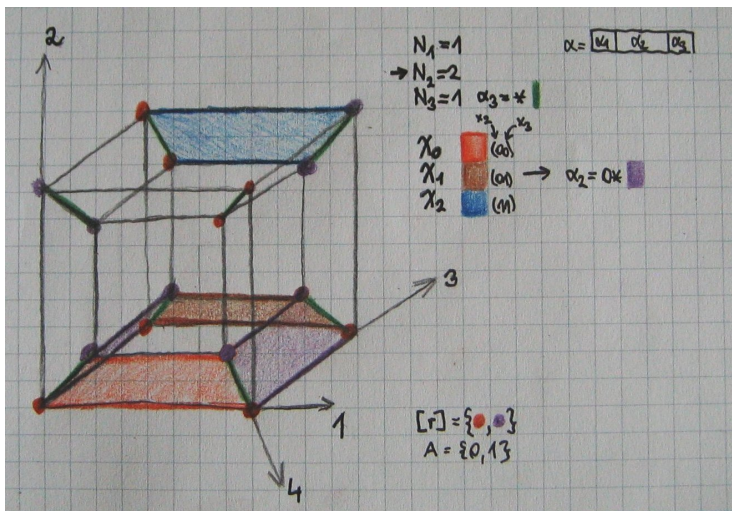 2
N₁=1
→ N₂=2
N₃=1 α₃=*
α= α₁ α₂ α₃
x₂ x₃
χ₀ (00)
χ₁ (01) → α₂=0*
χ₂ (11)
3
1
4
[r]={ , }
A={0,1}